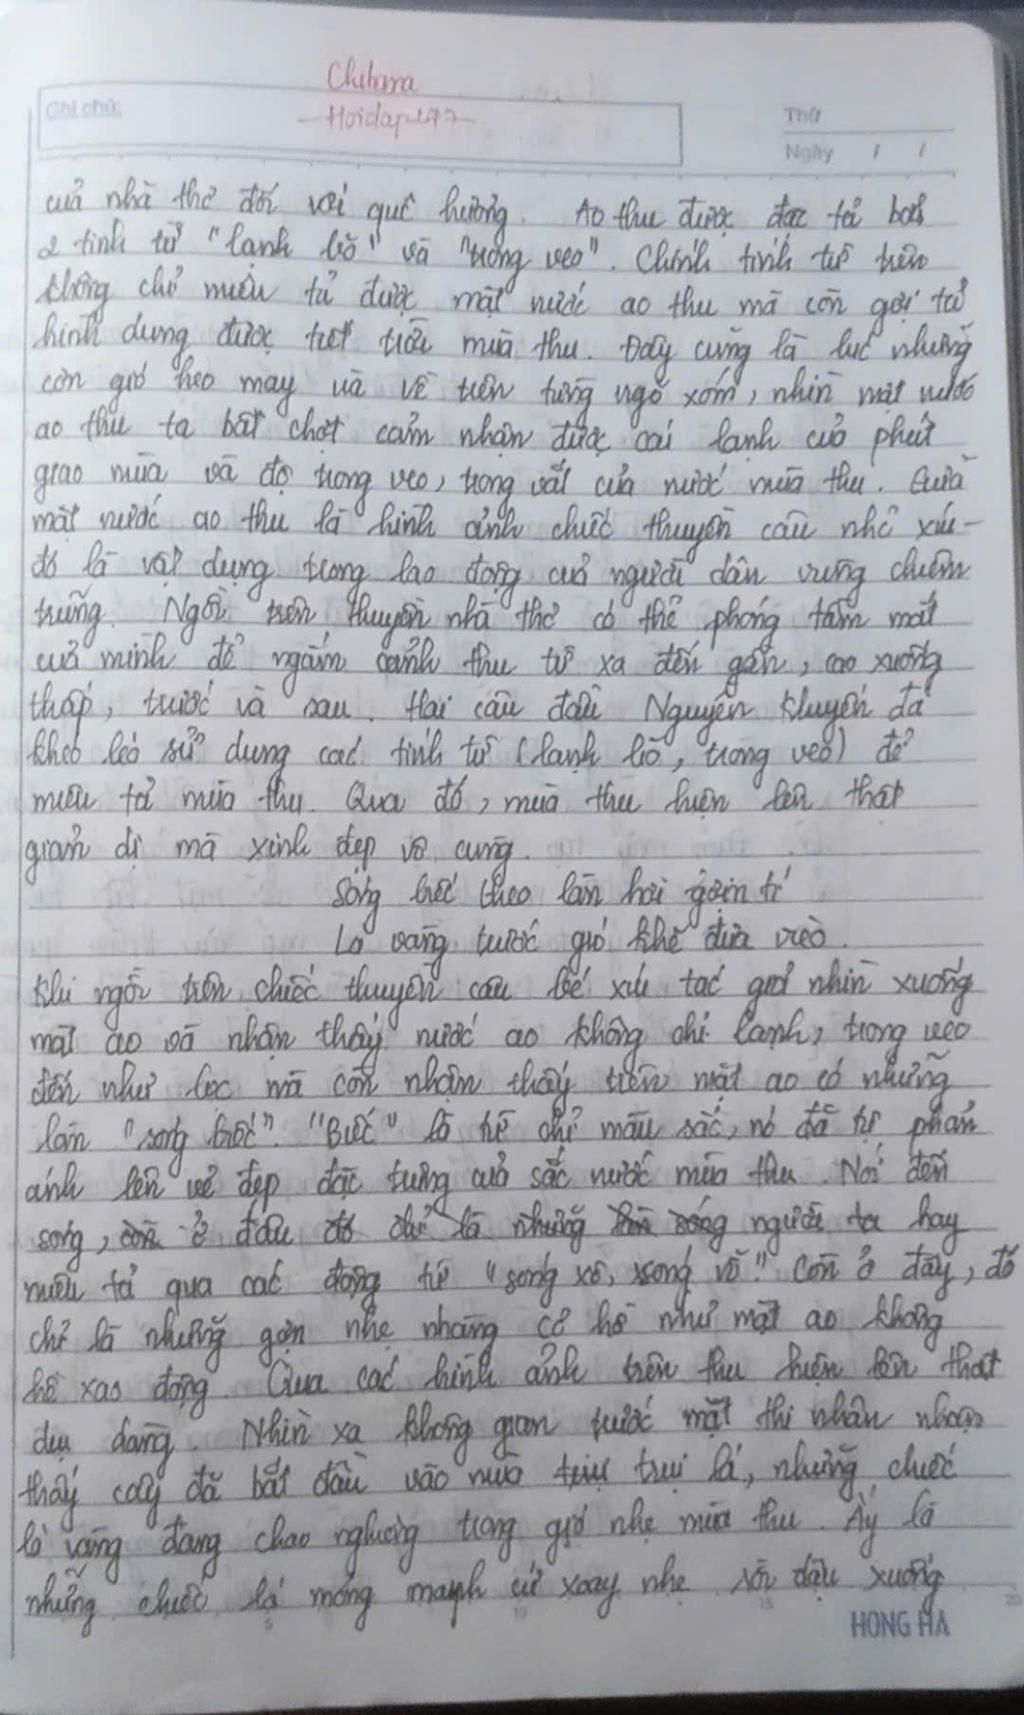 Chibama
Hoidap247
Ghi chú:
Thứ
Ngày / /
của nhà thơ đối với quê hương. Ao thu được đặc tả bởi
2 tính từ "lạnh lẽo" và "trong veo". Chính tính từ trên
không chỉ miêu tả được mặt nước ao thu mà còn gợi tả
hình dung được tiết trời mùa thu. Đây cũng là lúc những
cơn gió heo may ùa về trên từng ngõ xóm, nhìn mặt nước
ao thu ta bất chợt cảm nhận được cái lạnh của phút
giao mùa và độ trong veo, trong vắt của nước mùa thu. Giữa
mặt nước ao thu là hình ảnh chiếc thuyền câu nhỏ xíu -
đó là vật dụng trong lao động của người dân vùng chiêm
trũng. Ngồi trên thuyền nhà thơ có thể phóng tầm mắt
của mình để ngắm cảnh thu từ xa đến gần, cao xuống
thấp, trước và sau. Hai câu đầu Nguyễn Khuyến đã
khéo léo sử dụng các tính từ (lạnh lẽo, trong veo) để
miêu tả mùa thu. Qua đó, mùa thu hiện lên thật
giản dị mà xinh đẹp vô cùng.
Sóng biếc theo làn hơi gợn tí
Lá vàng trước gió khẽ đưa vèo.
Khi ngồi trên chiếc thuyền câu bé xíu tác giả nhìn xuống
mặt ao và nhận thấy nước ao không chỉ lạnh, trong veo
đến như lọc mà còn nhận thấy trên mặt ao có những
làn "sóng biếc". "Biếc" là từ chỉ màu sắc, nó đã tự phản
ánh lên vẻ đẹp đặc trưng của sắc nước mùa thu. Nói đến
sóng, còn ở đâu đó chỉ là những làn sóng người ta hay
miêu tả qua các động từ "sóng xô, sóng vỗ". Còn ở đây, đó
chỉ là những gợn nhẹ nhàng cơ hồ như mặt ao không
hề xao động. Qua các hình ảnh trên thu hiện lên thật
dịu dàng. Nhìn xa không gian trước mặt thi nhân nhận
thấy cây đã bắt đầu vào mùa trút trụi lá, những chiếc
lá vàng đang chao nghiêng trong gió nhẹ mùa thu. Ấy là
những chiếc lá mỏng manh cứ xoay nhẹ rồi đậu xuống
5 10 15 20
HONG HA